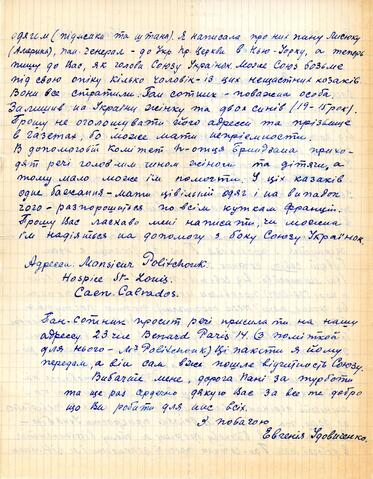 одягом (підмаска та штани) Я написала про них пану Лисюку
(Америка), пан-генерал - до Укр. Пр. Церкви в Нью-Йорку, а тепер
пишу до Вас, як голови Союзу Українок. Може Союз візьме
під свою опіку кілько чоловік - із цих нещасних козаків
Вони все стратили. Пан сотник - поважна особа.
Залишив на Україні жінку та двох синів (19-15 рок).
Прошу не оголошувати його адреси та прізвище
в газетах, бо може мати неприємности.
В допомоговий Комітет Чч-отця Бриндзана прихо-
дят речі головним чином жіночі та дітячи, а
тому мало може їм помогти. У цїх казаків
одне бажання - мати цівільний одяг і на випадок
чого - разпорошитися по всїм куткам Франції.
Прошу Вас ласкаво мені написати, чи можна
їм надіяться на допомогу з боку Союзу Українок.
Адреса: Monsieur Politchouk.
Hospice St-Louis.
Caen. Calvados.
Пан-сотник просит речі присилати на нашу
адресу 23 rue Benard Paris 14. (З поміткой
для нього - Mr Politchouk) Цї пакети я йому
передам, а він сам вже пошле вдячність Союзу.
Вибачте мене, дорога Пані за турботи
та ще раз сердечно дякую Вас за все те добро
що Ви робите для нас всїх.
З повагою
Евгенія Удовиченко.